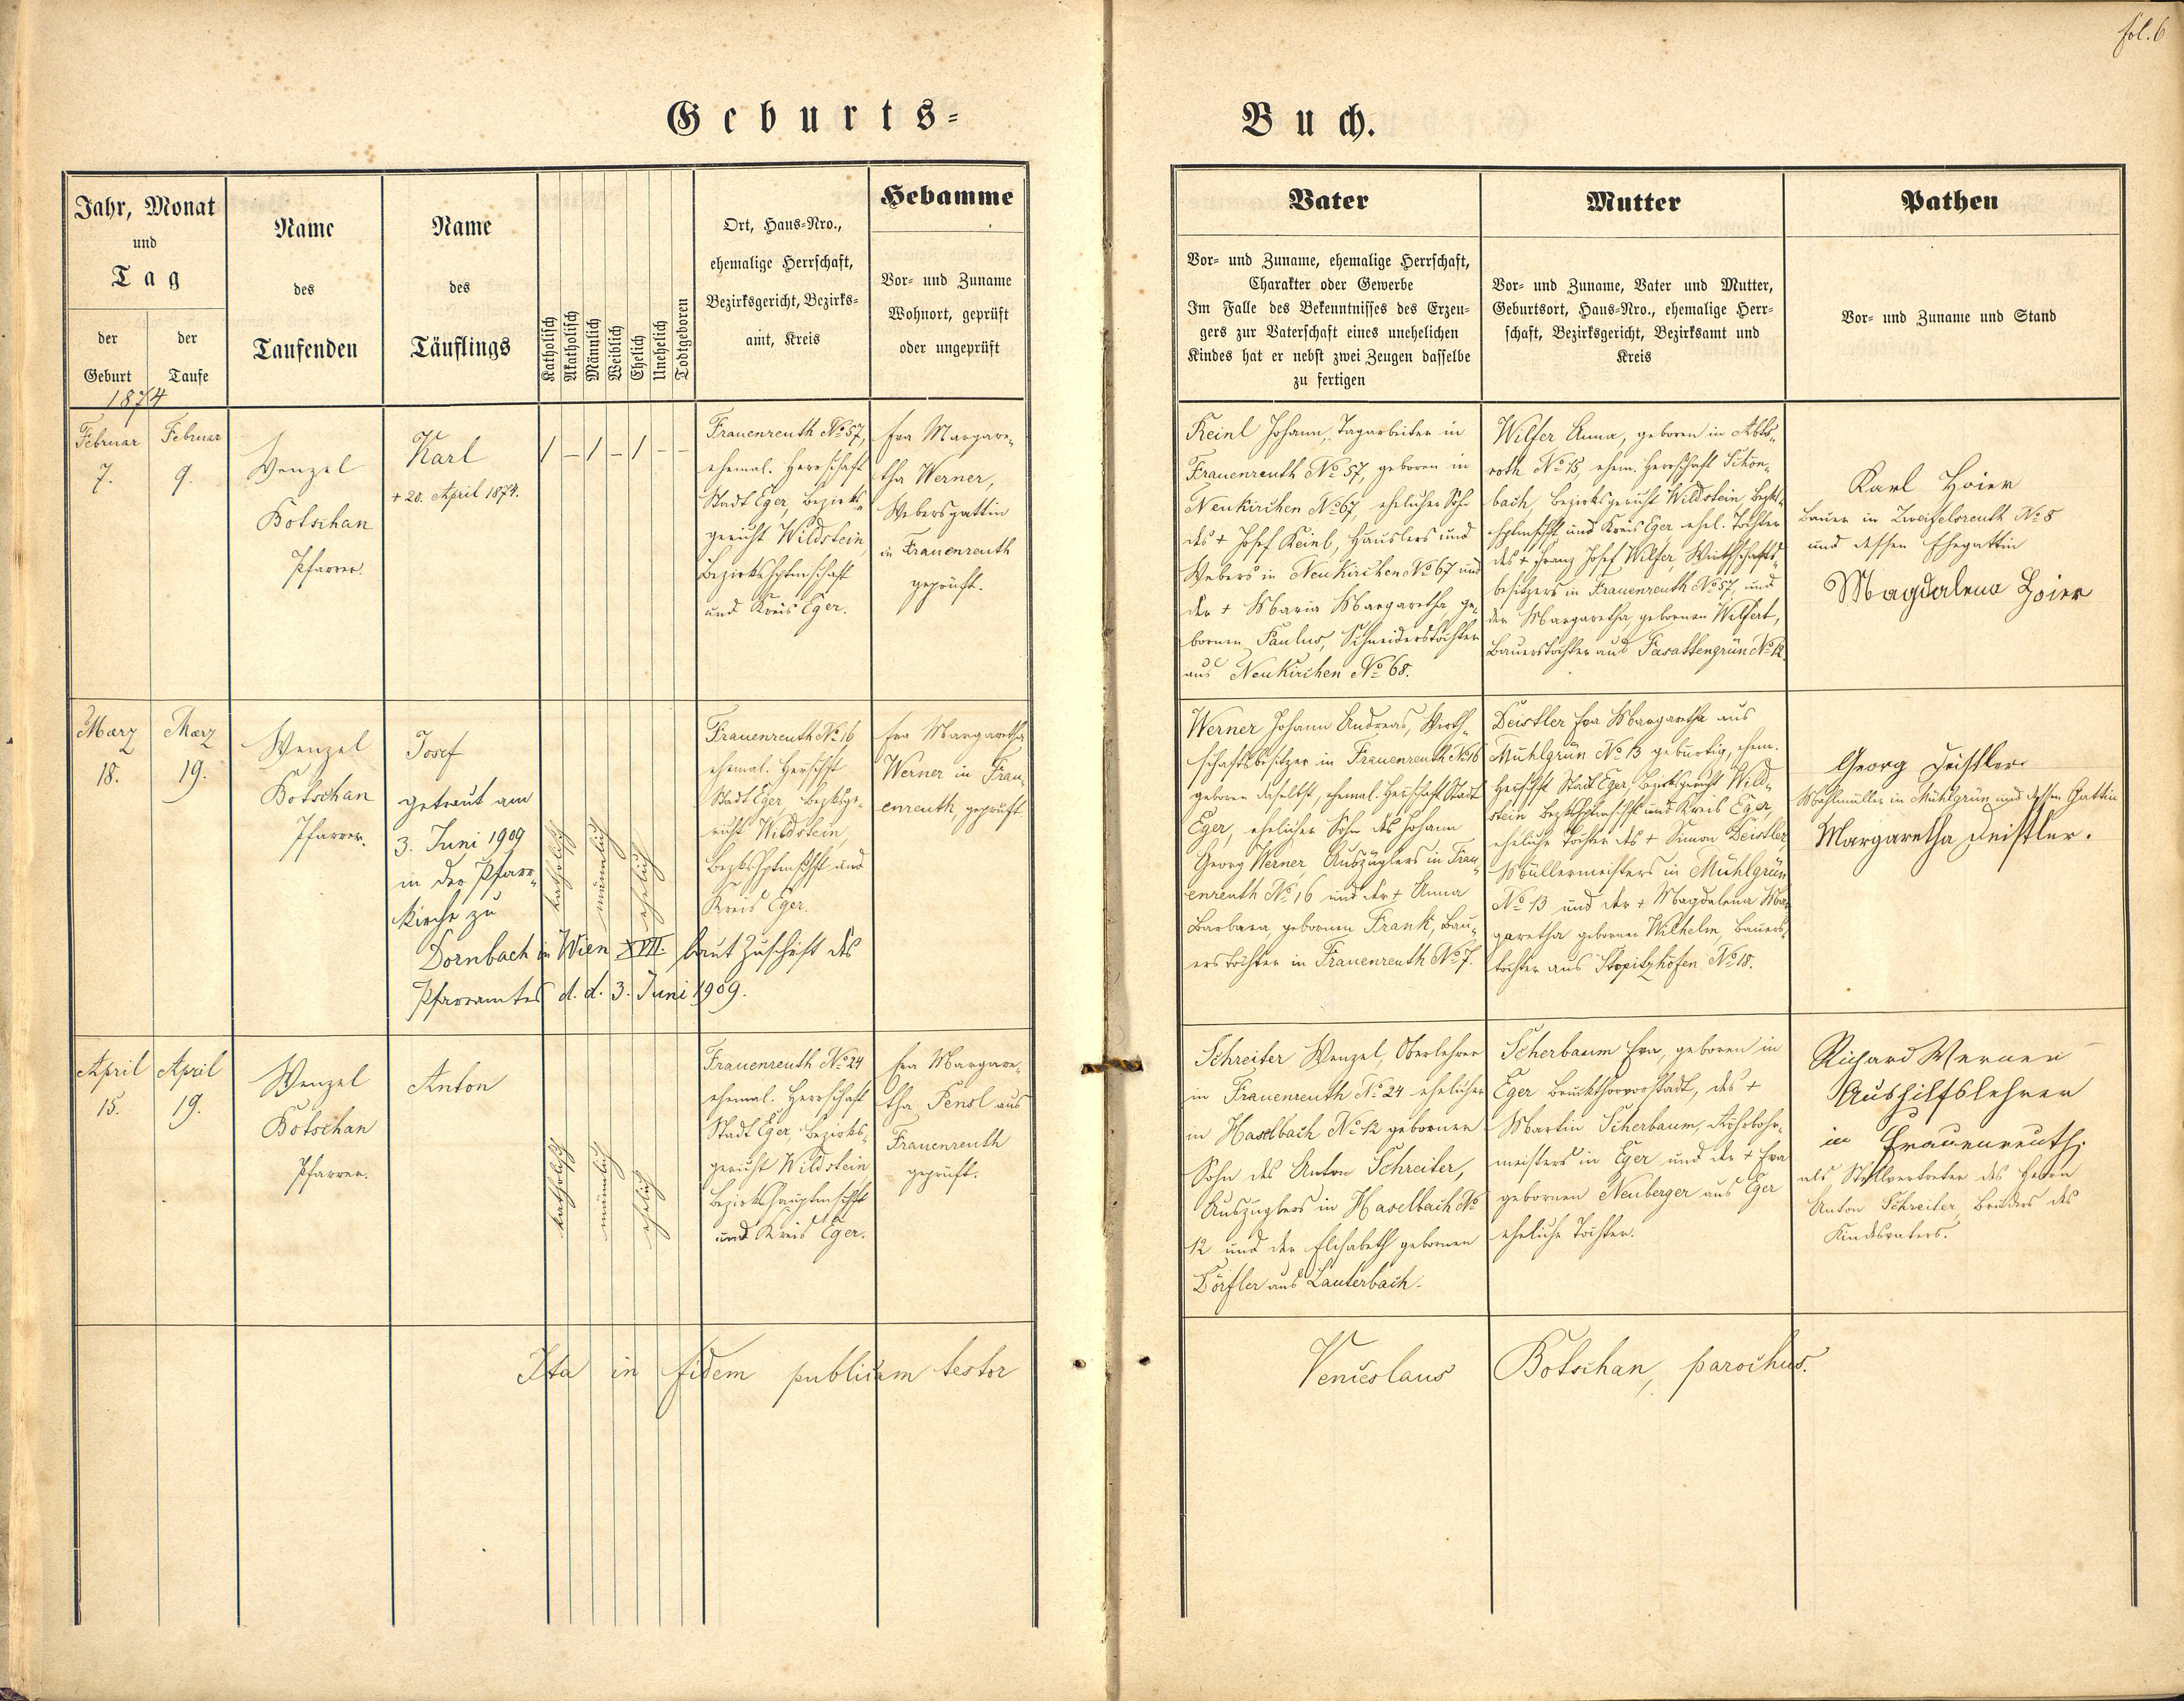 fol. 6
Geburts=
Buch.
Jahr, Monat
und
Tag
der
Geburt
der
Taufe
1874
Name
des
Taufenden
Name
des
Täuflings
Katholisch
Akatholisch
Männlich
Weiblich
Ehelich
Unehelich
Todtgeboren
Ort, Haus=Nro.,
ehemalige Herrschaft,
Bezirksgericht, Bezirks=
amt, Kreis
Hebamme
Vor= und Zuname
Wohnort, geprüft
oder ungeprüft
Vater
Vor= und Zuname, ehemalige Herrschaft,
Charakter oder Gewerbe
Im Falle des Bekenntnisses des Erzeu=
gers zur Vaterschaft eines unehelichen
Kindes hat er nebst zwei Zeugen dasselbe
zu fertigen
Mutter
Vor= und Zuname, Vater und Mutter,
Geburtsort, Haus=Nro., ehemalige Herr=
schaft, Bezirksgericht, Bezirksamt und
Kreis
Pathen
Vor= und Zuname und Stand
Februar
7.
Februar
9.
Wenzel
Botschan
Pfarrer.
Karl
+ 20. April 1874.
/ – / – / – –
Frauenreuth No 57,
ehemal. Herrschaft
Stadt Eger, Bezirks=
gericht Wildstein,
Bezirkshptmschaft
und Kreis Eger.
Eva Margare=
tha Werner,
Webersgattin
in Frauenreuth
geprüft.
Keinl Johann, Tagarbeiter in
Frauenreuth No 57, geboren in
Neukirchen No 67, ehelicher Sohn
des + Josef Keinl, Häuslers und
Webers in Neukirchen No 67 und
der + Maria Margaretha, ge=
bornen Paulus, Schneiderstochter
aus Neukirchen No 68.
Wilfer Anna, geboren in Abts=
roth No 15, ehem. Herrschaft Schön=
bach, Bezirksgericht Wildstein Bezks=
hptmschft und Kreis Eger, ehel. Tochter
des + Franz Josef Wilfer, Wirthschafts=
besitzers in Frauenreuth No 57, und
der Margaretha, gebornen Wilfert,
Bauerstochter aus Fasattengrün No 12.
Karl Hoier
Bauer in Zweifelsreuth No 8
und dessen Ehegattin
Magdalena Hoier
März
18.
März
19.
Wenzel
Botschan
Pfarrer.
Josef
getraut am
3. Juni 1909
in der Pfarr=
kirche zu
Dornbach in Wien XVII. laut Zuschrift des
Pfarramtes d. d. 3. Juni 1909.
katholisch
männlich
ehelich
Frauenreuth No 16
ehemal. Herrschft
Stadt Eger, Bezksge=
richt Wildstein,
Bezkshptmschft und
Kreis Eger.
Eva Margaretha
Werner in Frau=
enreuth, geprüft
Werner Johann Andreas, Wirth=
schaftsbesitzer in Frauenreuth No 16
geboren daselbst, ehemal. Herrschaft Stadt
Eger, ehelicher Sohn des Johann
Georg Werner, Auszüglers in Frau=
enreuth No 16 und der + Anna
Barbara, gebornen Frank, Bau=
erstochter in Frauenreuth No 7.
Deistler Eva Margaretha aus
Mühlgrün No 13 gebürtig, ehem.
Herrschft Stadt Eger, Bezirksgericht Wild=
stein Bezkshptmschft und Kreis Eger,
eheliche Tochter des + Simon Deistler
Müllermeisters in Mühlgrün
No 13 und der + Magdalena Mar
garetha gebornen Wilhelm, Bauers=
tochter aus Stopitzhöfen No 18.
Georg Deistler
Mahlmüller in Mühlgrün und dessen Gattin
Margaretha Deistler.
April
15.
April
19.
Wenzel
Botschan
Pfarrer.
Anton
katholisch
männlich
ehelich
Frauenreuth No 24
ehemal. Herrschaft
Stadt Eger, Bezirks=
gericht Wildstein
Bezirkshauptmschft
und Kreis Eger.
Eva Margare=
tha Pensl aus
Frauenreuth
geprüft.
Schreiter Wenzel, Oberlehrer
in Frauenreuth No 24 ehelicher
in Haselbach No 12 geborner
Sohn des Anton Schreiter,
Auszuglers in Haselbach No
12 und der Elisabeth gebornen
Dörfler aus Lauterbach.
Scherbaum Eva, geboren in
Eger Bruckthorvorstadt, des +
Martin Scherbaum, Röhrbohr=
meisters in Eger und der + Eva
gebornen Neuberger aus Eger
eheliche Tochter.
Richard Werner
Aushilfslehrer
in Frauenreuth,
als Stellvertreter des Herrn
Anton Schreiter, Bruders des
Kindsvaters.
Ita in fidem publicam testor
Venceslaus Botschan, parochus.